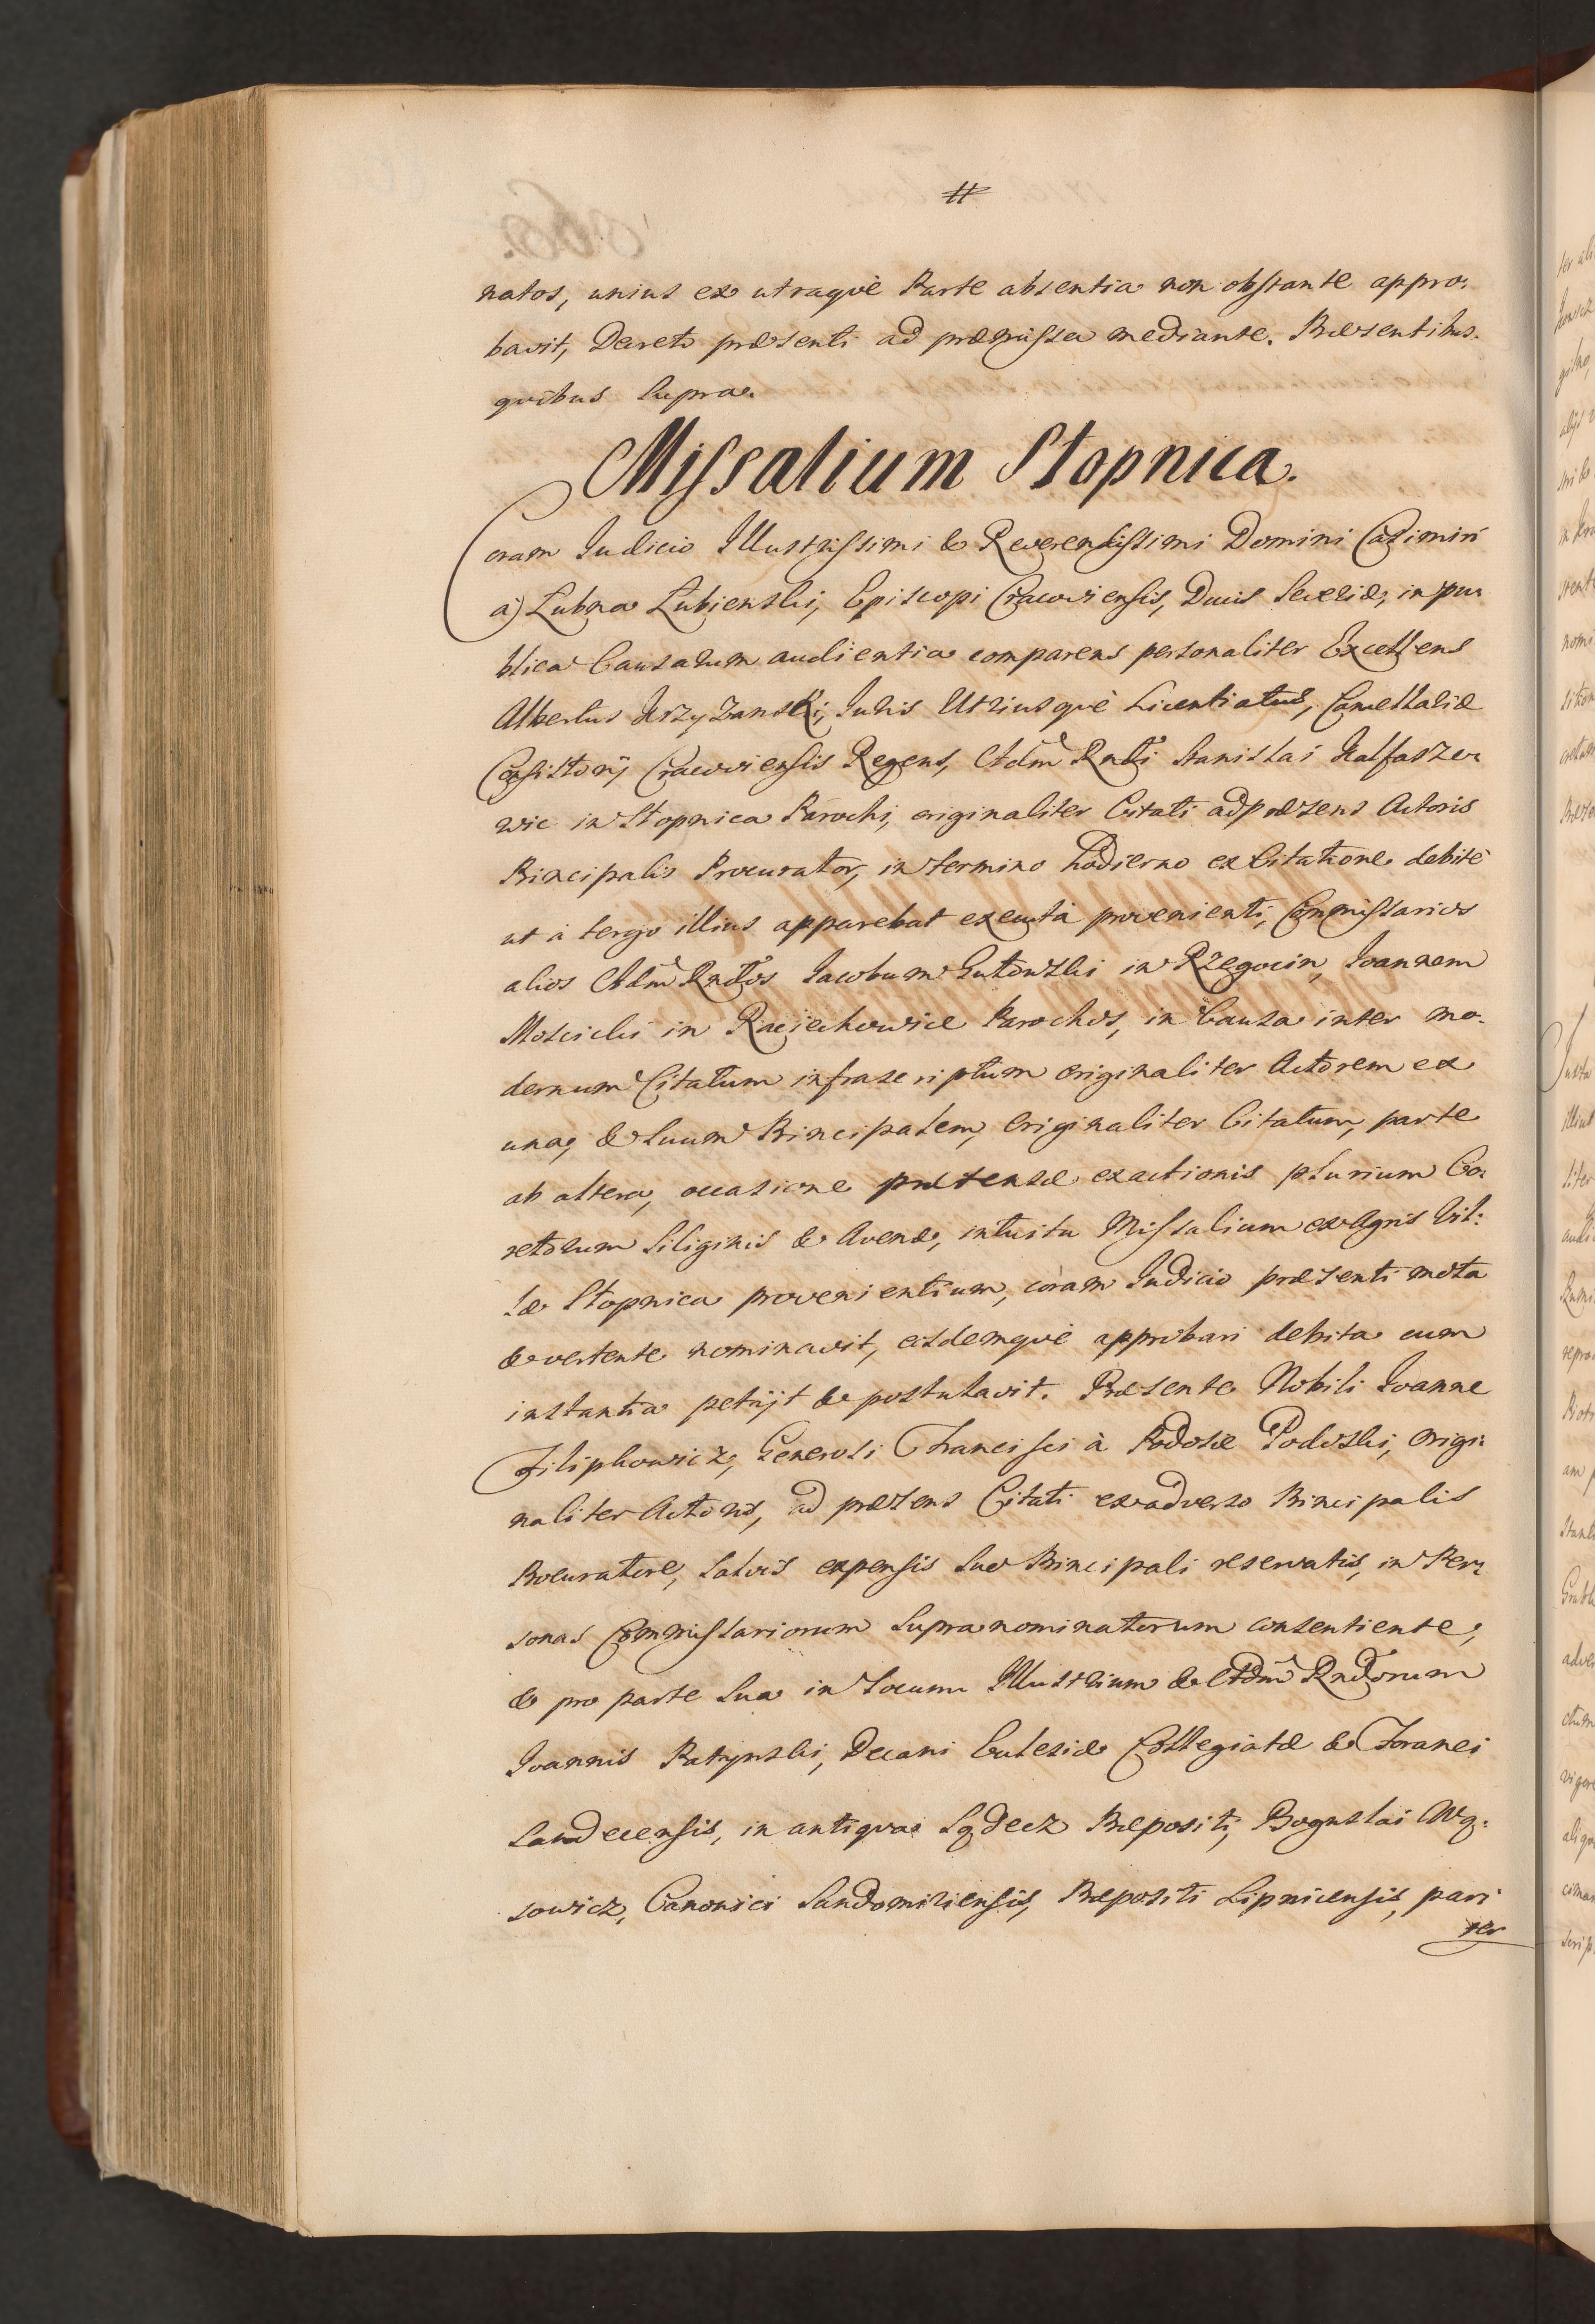 natos, unius ex utraquè Parte absentia non obstante appro:
bavit, Decreto præsenti ad præmissa mediante. Præsentibus
quibus supra.
Missalium Stopnica.
Coram Judicio Illustrissimi & Reverendissimi Domini Casimiri
à Lubna Lubienski, Episcopi Cracoviensis, Ducis Severiæ, in pu:
blica Causarum audientia comparens personaliter Excellens
Albertus Krzyzanski, Juris Utriusquè Licentiatus, Cancellariæ
Consistorij Cracoviensis Regens, Adm Rndi Stanislai Kalfaszer
wic in Stopnica Parochi, originaliter Citati ad præsens Actoris
Principalis Procurator, in termino hodierno ex Citatione debitè
ut à tergo illius apparebat executa provenienti, Commissarios
alios Adm Rndos Jacobum Gutowski in Rzegocin, Joannem
Moscicki in Raciechowice Parochos, in Causa inter mo:
dernum Citatum infrascriptum originaliter Actorem ex
una, & suum Principalem, originaliter Citatum, parte
ab altera, occasione prætensæ exactionis plurium Co:
retorum Siliginis & Avenæ, intuitu Missalium ex Agris Vil:
læ Stopnica provenientium, coram Judicio præsenti mota
& vertente nominavit, eisdemquè approbari debita cum
instantia petijt & postulavit. Præsente Nobili Joanne
Filiphowicz, Generosi Francisci à Podosie Podoski, origi:
naliter Actoris, ad præsens Citati ex adverso Principalis
Procuratore, salvis expensis suo Principali reservatis, in Per:
sonas Commissariorum supranominatorum consentiente,
& pro parte sua in locum Illustrium & Adm Rndorum
Joannis Ratynski, Decani Ecclesiæ Collegiatæ & Foranei
Sandecensis, in antiqua Sądecz Præpositi, Boguslai Wą:
sowicz, Canonici Sandomiriensis, Præpositi Lipnicensis, pari
ter